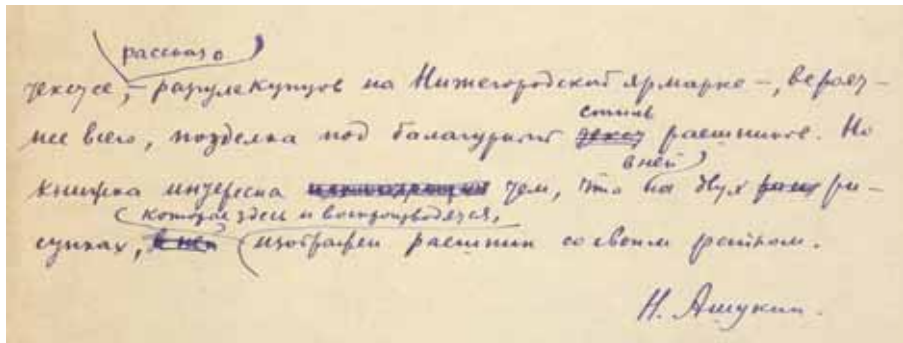 рассказ о
тексте, – разгуле купцов на Нижегородской ярмарке –, вероят-
нее всего, подделка под балагурный
стиль
раешников. Но
книжка интересна
чем, что
в ней
на двух
ри-
сунках,
которые здесь и воспроизводятся,
изображен раешник со своим райком.
Н. Ашукин.